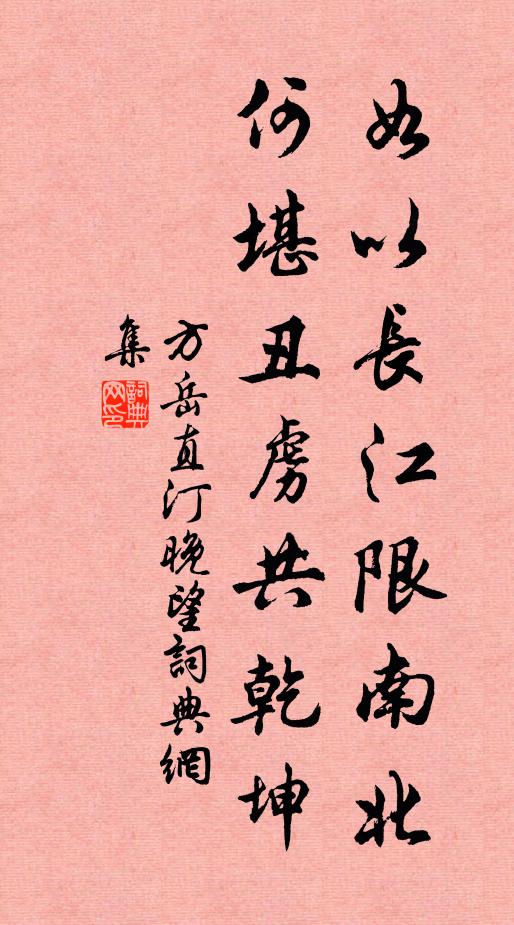 如以長江限南北
何堪丑虜共乾坤
方岳直汀晚望詞典網
集
詞典網印